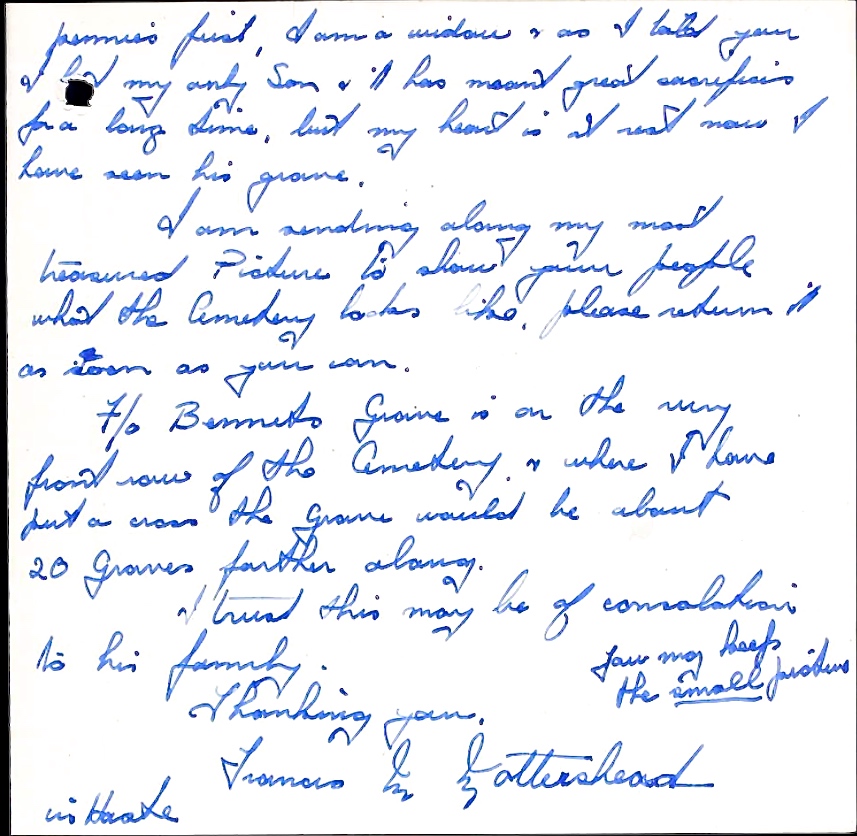 pennies first, I am a widow & as I told you
I my only Son & it has meant great sacrifices
for a long time, but my heart is at rest now I
have seen his grave.
I am sending along my most
treasured Picture to show your people
what the Cemetery looks like, please return it
as soon as you can.
F/o Bennets Grave is on the very
front row of the Cemetery, & where I have
put a cross the Grave would be about
20 Graves farther along.
I trust this may be of consolation
to his family.
You may keep
the small picture
Thanking you.
Frances M Mottershead
in Haste